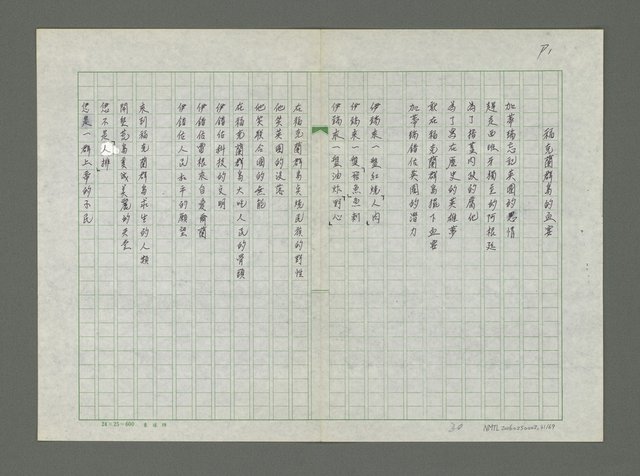 P1
福克蘭群島的血宴
加華瑞忘記英國的恩情
趕走西班牙獨立的阿根廷
為了掩蓋內政的腐化
為了留在歷史的英雄夢
就在福克蘭群島擺下血宴
加華瑞錯估英國的潛力
伊瑞來一盤紅燒「人肉」
伊瑞來一盤「魚刺」
伊瑞來一盤油炸「野心」
在福克蘭群島英統民族的野性
他笑英國的沒落
他笑聯合國的無能
在福克蘭群島大吃人民的骨頭
伊錯估科技的文明
伊錯估雷根來自愛爾蘭
伊錯估人民和平的願望
來到福克蘭群島求生的人類
開墾荒島變成美麗的天堂
您不是「人排」
您是一群上帝的子民
24×25=600
30
NMTL20060250002,31/69